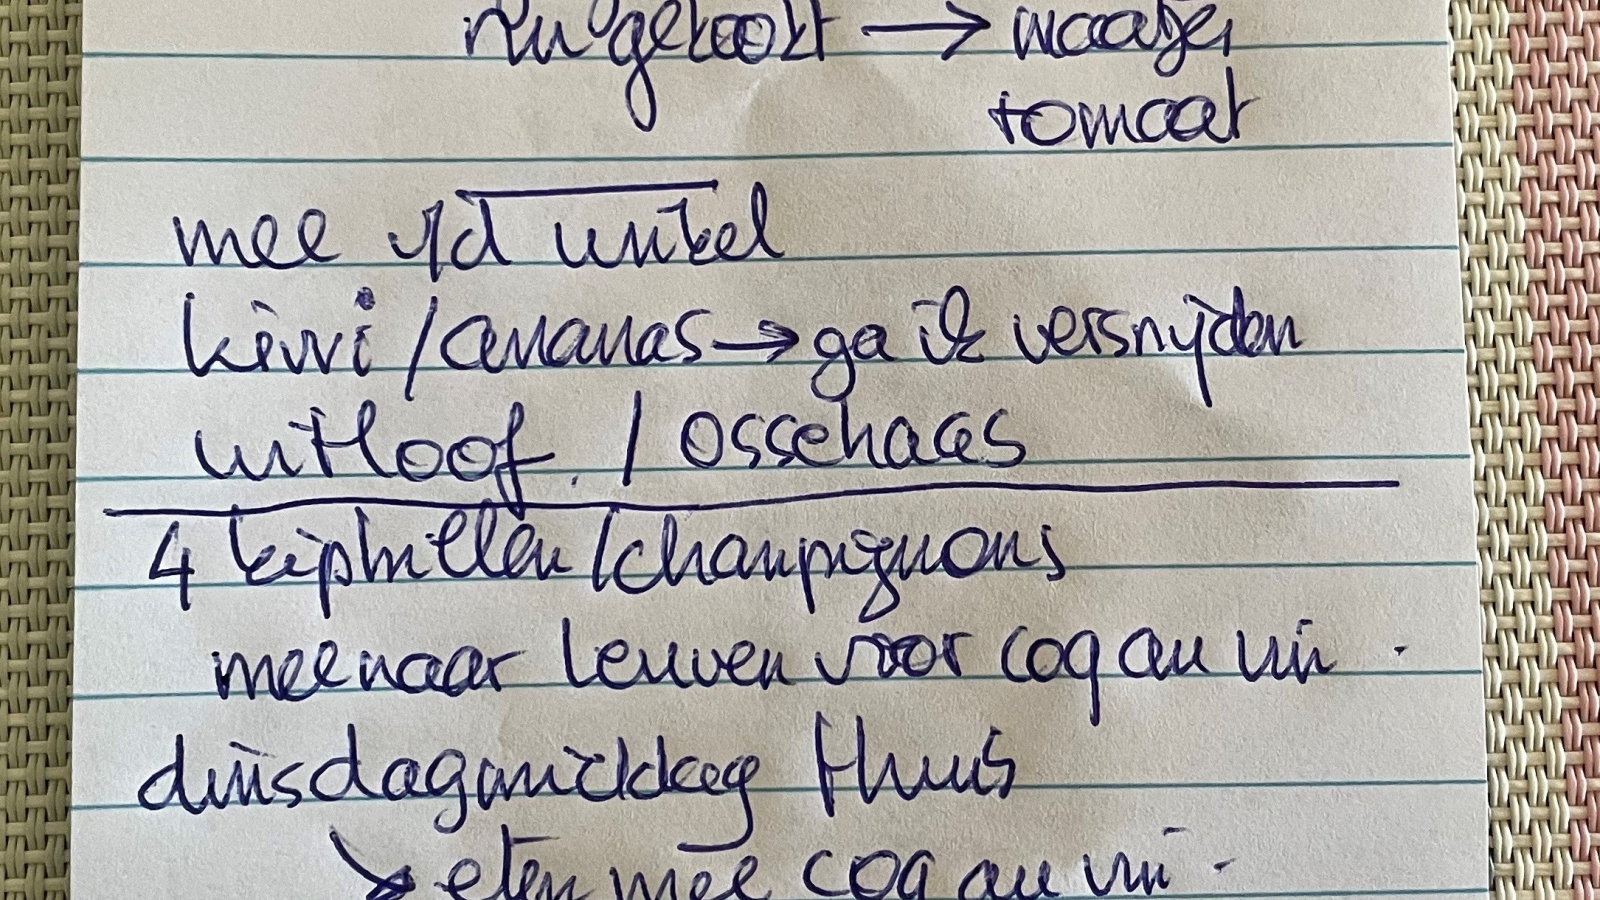 gekookt → maatjes
tomaat
mee v/d winkel
kiwi / ananas → ga ik versnijden
witloof. / ossehaas
4 kipfillen / champignons
mee naar Leuven voor coq au vin.
dinsdagmiddag thuis
→ eten mee coq au vin.